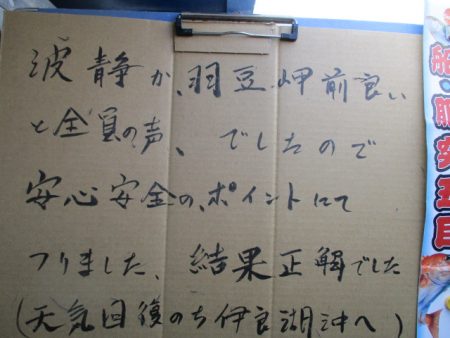 波静か、羽豆岬前良い
と全員の声、でしたので
安心安全の、ポイントにて
つりました、結果正解でした
(天気回復のち伊良湖沖へ)
船・胴突五目